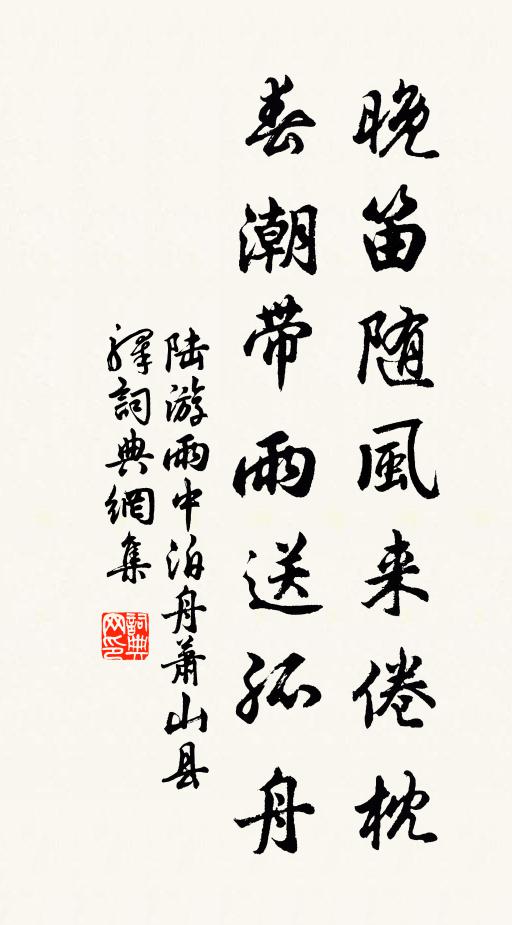 晚笛随風来倦枕
春潮带雨送孤舟
陆游雨中泊舟萧山县
釋詞典網集
詞典网印